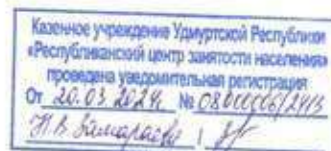 Казенное учреждение Удмуртской Республики
«Республиканский центр занятости населения»
проведена уведомительная регистрация
От 20.03.2024г. №